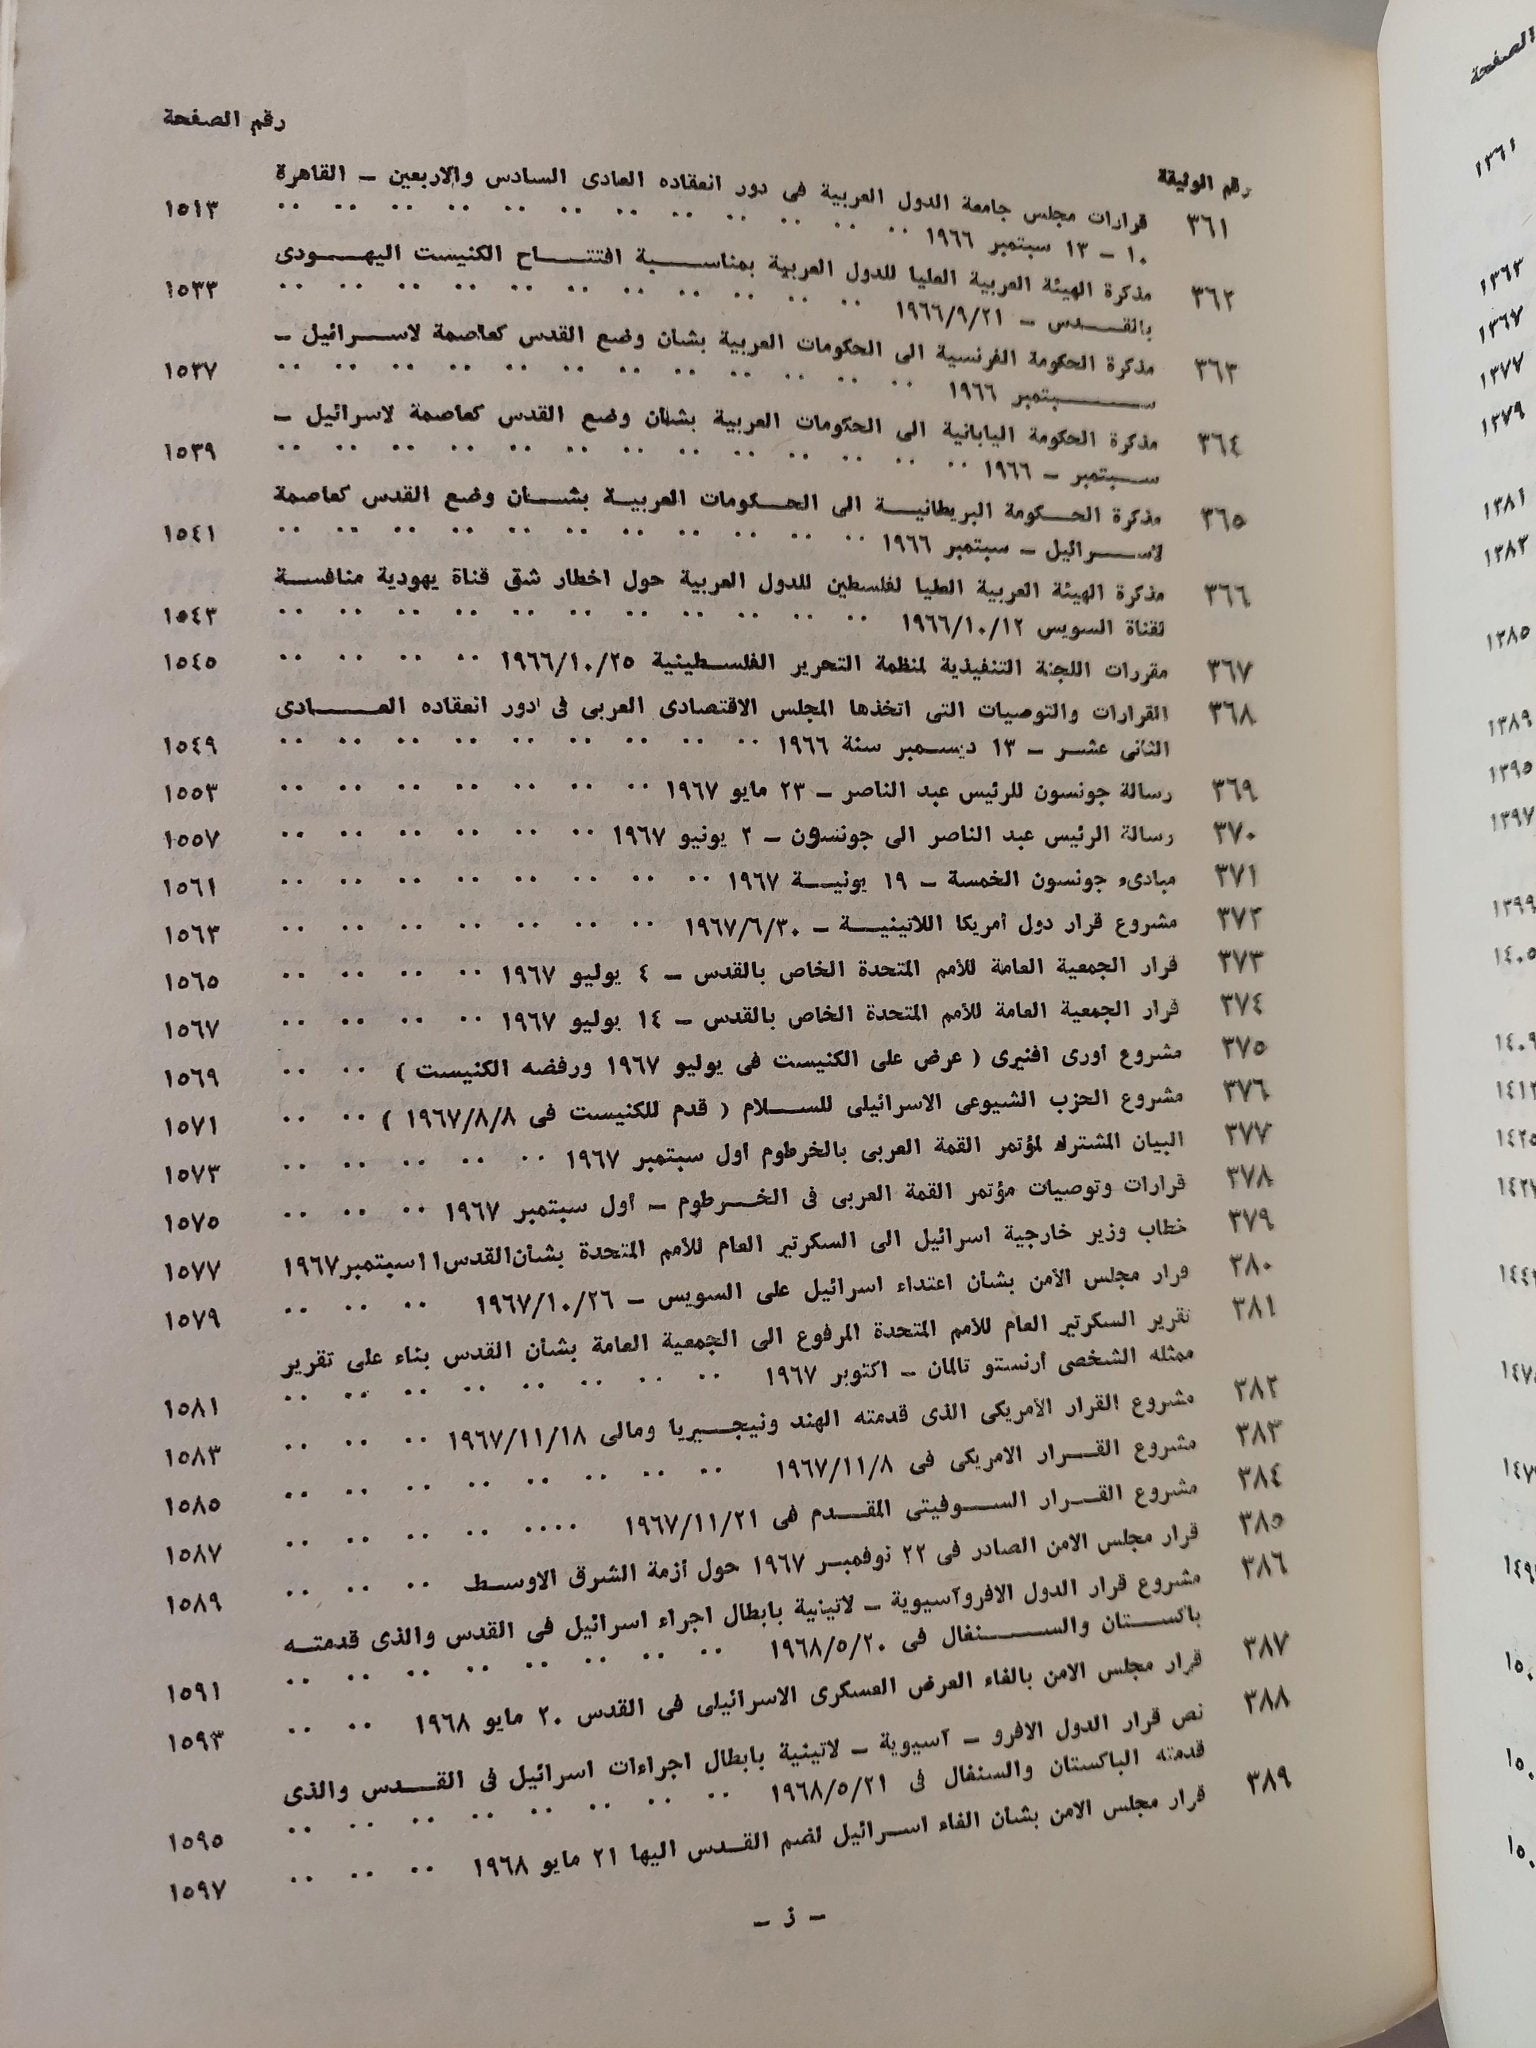 رقم الصفحة
رقم الوثيقة
٣٦١ قرارات مجلس جامعة الدول العربية فى دور انعقاده العادى السادس والاربعين ــ القاهرة
١٠ ــ ١٣ سبتمبر ١٩٦٦ ١٥١٣
٣٦٢ مذكرة الهيئة العربية العليا للدول العربية بمناسبة افتتاح الكنيست اليهودى
بالقدس ــ ١٩٦٦/٩/٢١ ١٥٣٣
٣٦٣ مذكرة الحكومة الفرنسية الى الحكومات العربية بشأن وضع القدس كعاصمة لاسرائيل ــ
سبتمبر ١٩٦٦ ١٥٣٧
٣٦٤ مذكرة الحكومة اليابانية الى الحكومات العربية بشأن وضع القدس كعاصمة لاسرائيل ــ
سبتمبر ــ ١٩٦٦ ١٥٣٩
٣٦٥ مذكرة الحكومة البريطانية الى الحكومات العربية بشأن وضع القدس كعاصمة
لاسرائيل ــ سبتمبر ١٩٦٦ ١٥٤١
٣٦٦ مذكرة الهيئة العربية العليا لفلسطين للدول العربية حول اخطار شق قناة يهودية منافسة
لقناة السويس ١٩٦٦/١٠/١٢ ١٥٤٣
٣٦٧ مقررات اللجنة التنفيذية لمنظمة التحرير الفلسطينية ١٩٦٦/١٠/٢٥ ١٥٤٥
٣٦٨ القرارات والتوصيات التى اتخذها المجلس الاقتصادى العربى فى دور انعقاده العادى
الثانى عشر ــ ١٣ ديسمبر سنة ١٩٦٦ ١٥٤٩
٣٦٩ رسالة جونسون للرئيس عبد الناصر ــ ٢٣ مايو ١٩٦٧ ١٥٥٣
٣٧٠ رسالة الرئيس عبد الناصر الى جونسون ــ ٢ يونيو ١٩٦٧ ١٥٥٧
٣٧١ مبادىء جونسون الخمسة ــ ١٩ يونية ١٩٦٧ ١٥٦١
٣٧٢ مشروع قرار دول أمريكا اللاتينية ــ ١٩٦٧/٦/٣٠ ١٥٦٣
٣٧٣ قرار الجمعية العامة للأمم المتحدة الخاص بالقدس ــ ٤ يوليو ١٩٦٧ ١٥٦٥
٣٧٤ قرار الجمعية العامة للأمم المتحدة الخاص بالقدس ــ ١٤ يوليو ١٩٦٧ ١٥٦٧
٣٧٥ مشروع أورى افنيرى ( عرض على الكنيست فى يوليو ١٩٦٧ ورفضه الكنيست ) ١٥٦٩
٣٧٦ مشروع الحزب الشيوعى الاسرائيلى للسلام ( قدم للكنيست فى ١٩٦٧/٨/٨ ) ١٥٧١
٣٧٧ البيان المشترك لمؤتمر القمة العربى بالخرطوم أول سبتمبر ١٩٦٧ ١٥٧٣
٣٧٨ قرارات وتوصيات مؤتمر القمة العربى فى الخرطوم ــ أول سبتمبر ١٩٦٧ ١٥٧٥
٣٧٩ خطاب وزير خارجية اسرائيل الى السكرتير العام للأمم المتحدة بشأن القدس ١١ سبتمبر ١٩٦٧ ١٥٧٧
٣٨٠ قرار مجلس الأمن بشأن اعتداء اسرائيل على السويس ــ ١٩٦٧/١٠/٢٦ ١٥٧٩
٣٨١ تقرير السكرتير العام للأمم المتحدة المرفوع الى الجمعية العامة بشأن القدس بناء على تقرير
ممثله الشخصى أرنستو تالمان ــ اكتوبر ١٩٦٧ ١٥٨١
٣٨٢ مشروع القرار الأمريكى الذى قدمته الهند ونيجيريا ومالى ١٩٦٧/١١/١٨ ١٥٨٣
٣٨٣ مشروع القرار الامريكى فى ١٩٦٧/١١/٨ ١٥٨٥
٣٨٤ مشروع القرار السوفيتى المقدم فى ١٩٦٧/١١/٢١ ١٥٨٧
٣٨٥ قرار مجلس الامن الصادر فى ٢٢ نوفمبر ١٩٦٧ حول أزمة الشرق الاوسط ١٥٨٩
٣٨٦ مشروع قرار الدول الافروآسيوية ــ لاتينية بابطال اجراء اسرائيل فى القدس والذى قدمته
باكستان والسنغال فى ١٩٦٨/٥/٢٠ ١٥٩١
٣٨٧ قرار مجلس الامن بالغاء العرض العسكرى الاسرائيلى فى القدس ٢٠ مايو ١٩٦٨ ١٥٩٣
٣٨٨ نص قرار الدول الافرو ــ آسيوية ــ لاتينية بابطال اجراءات اسرائيل فى القدس والذى
قدمته الباكستان والسنغال فى ١٩٦٨/٥/٢١ ١٥٩٥
٣٨٩ قرار مجلس الامن بشأن الغاء اسرائيل لضم القدس اليها ٢١ مايو ١٩٦٨ ١٥٩٧
ــ ز ــ
الصفحة
١٣٦١
١٣٦٣
١٣٦٧
١٣٧٧
١٣٧٩
١٣٨١
١٣٨٣
١٣٨٥
١٣٨٩
١٣٩٥
١٣٩٧
١٣٩٩
١٤٠٥
١٤٠٩